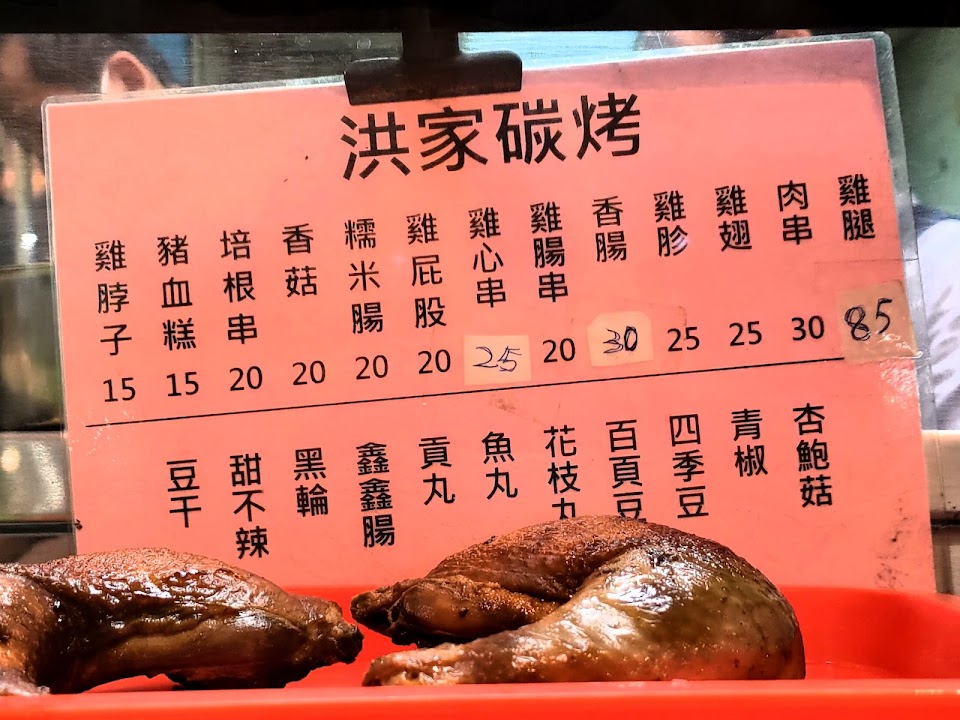 洪家碳烤
雞腿
85
肉串
30
雞翅
25
雞胗
25
香腸
30
雞腸串
20
雞心串
25
雞屁股
20
糯米腸
20
香菇
20
培根串
20
豬血糕
15
雞脖子
15
杏鮑菇
青椒
四季豆
百頁豆
花枝丸
魚丸
貢丸
鑫鑫腸
黑輪
甜不辣
豆干